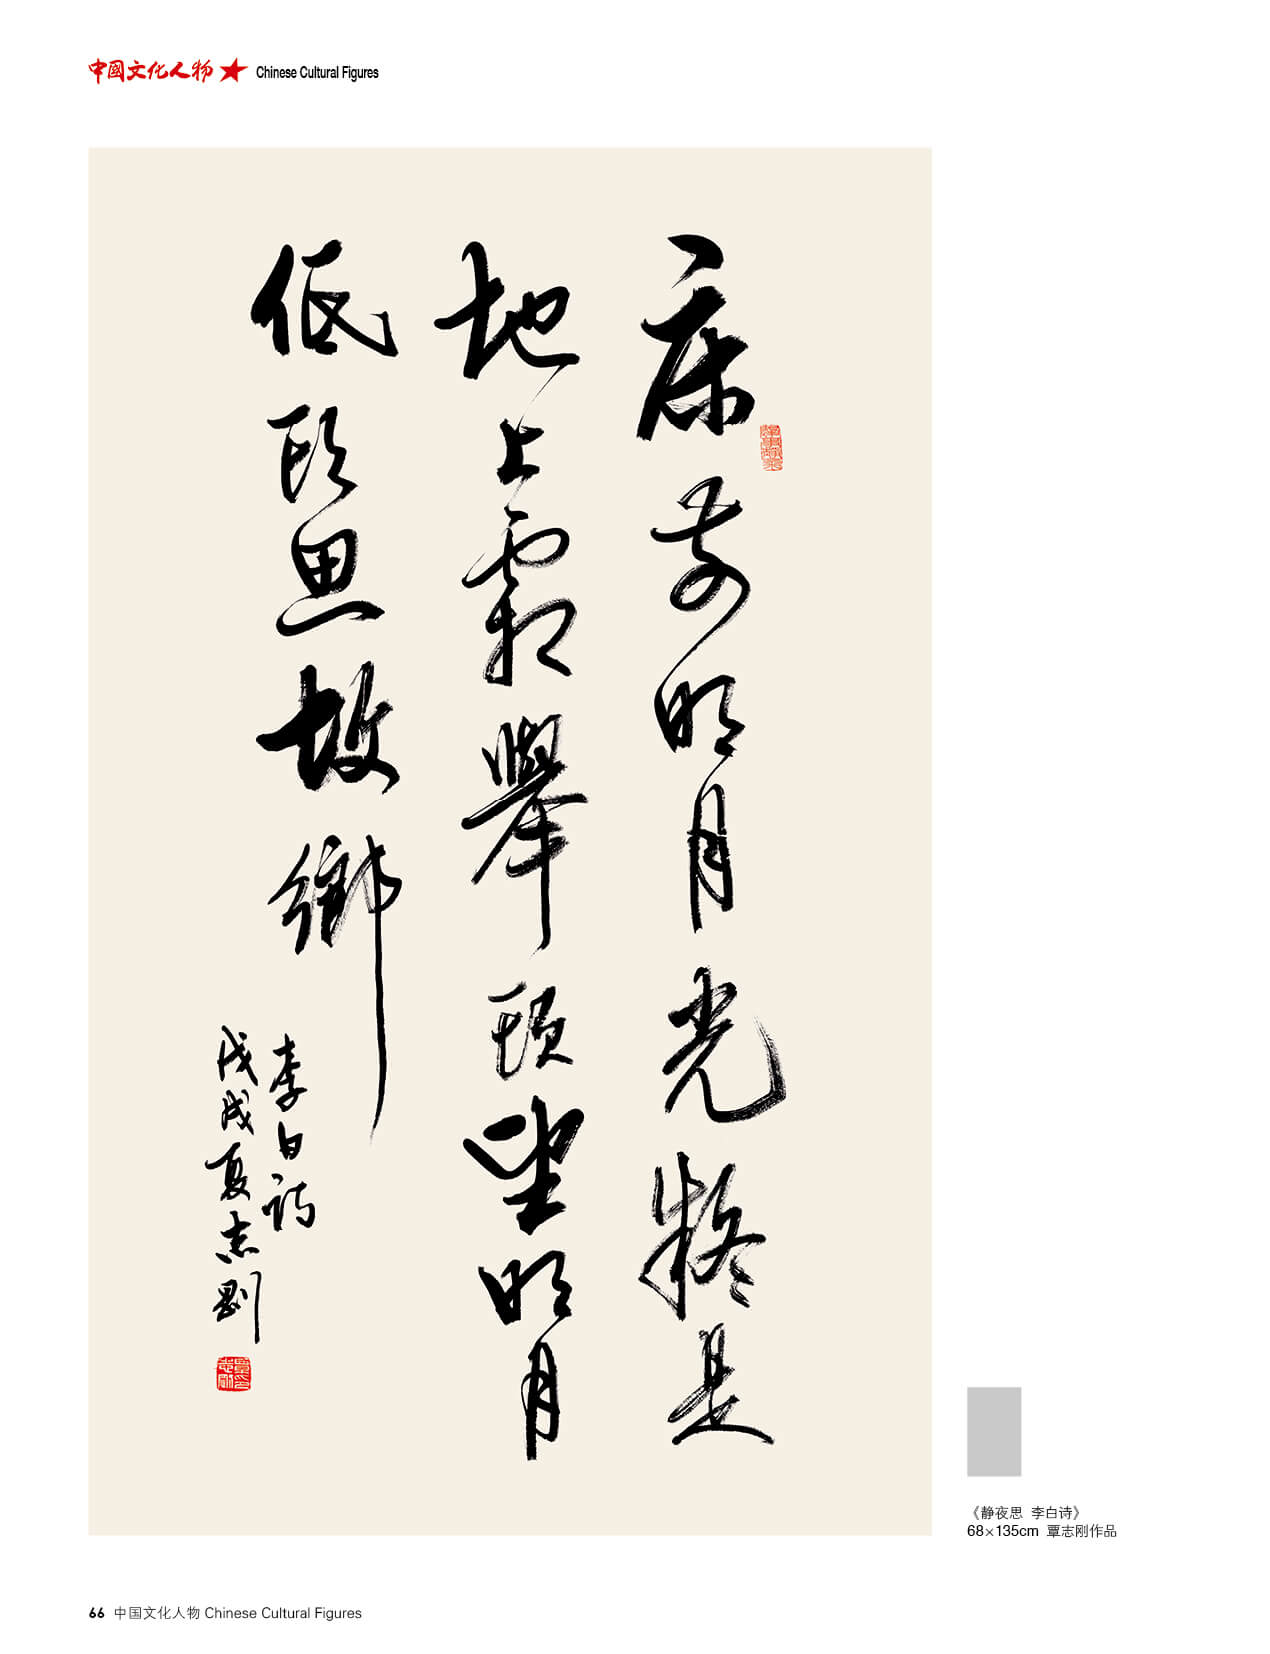 中國文化人物 Chinese Cultural Figures
床前明月光疑是
地上霜舉頭望明月
低頭思故鄉
李白詩
戊戌夏志剛
《静夜思 李白诗》
68×135cm 覃志刚作品
66 中国文化人物 Chinese Cultural Figures